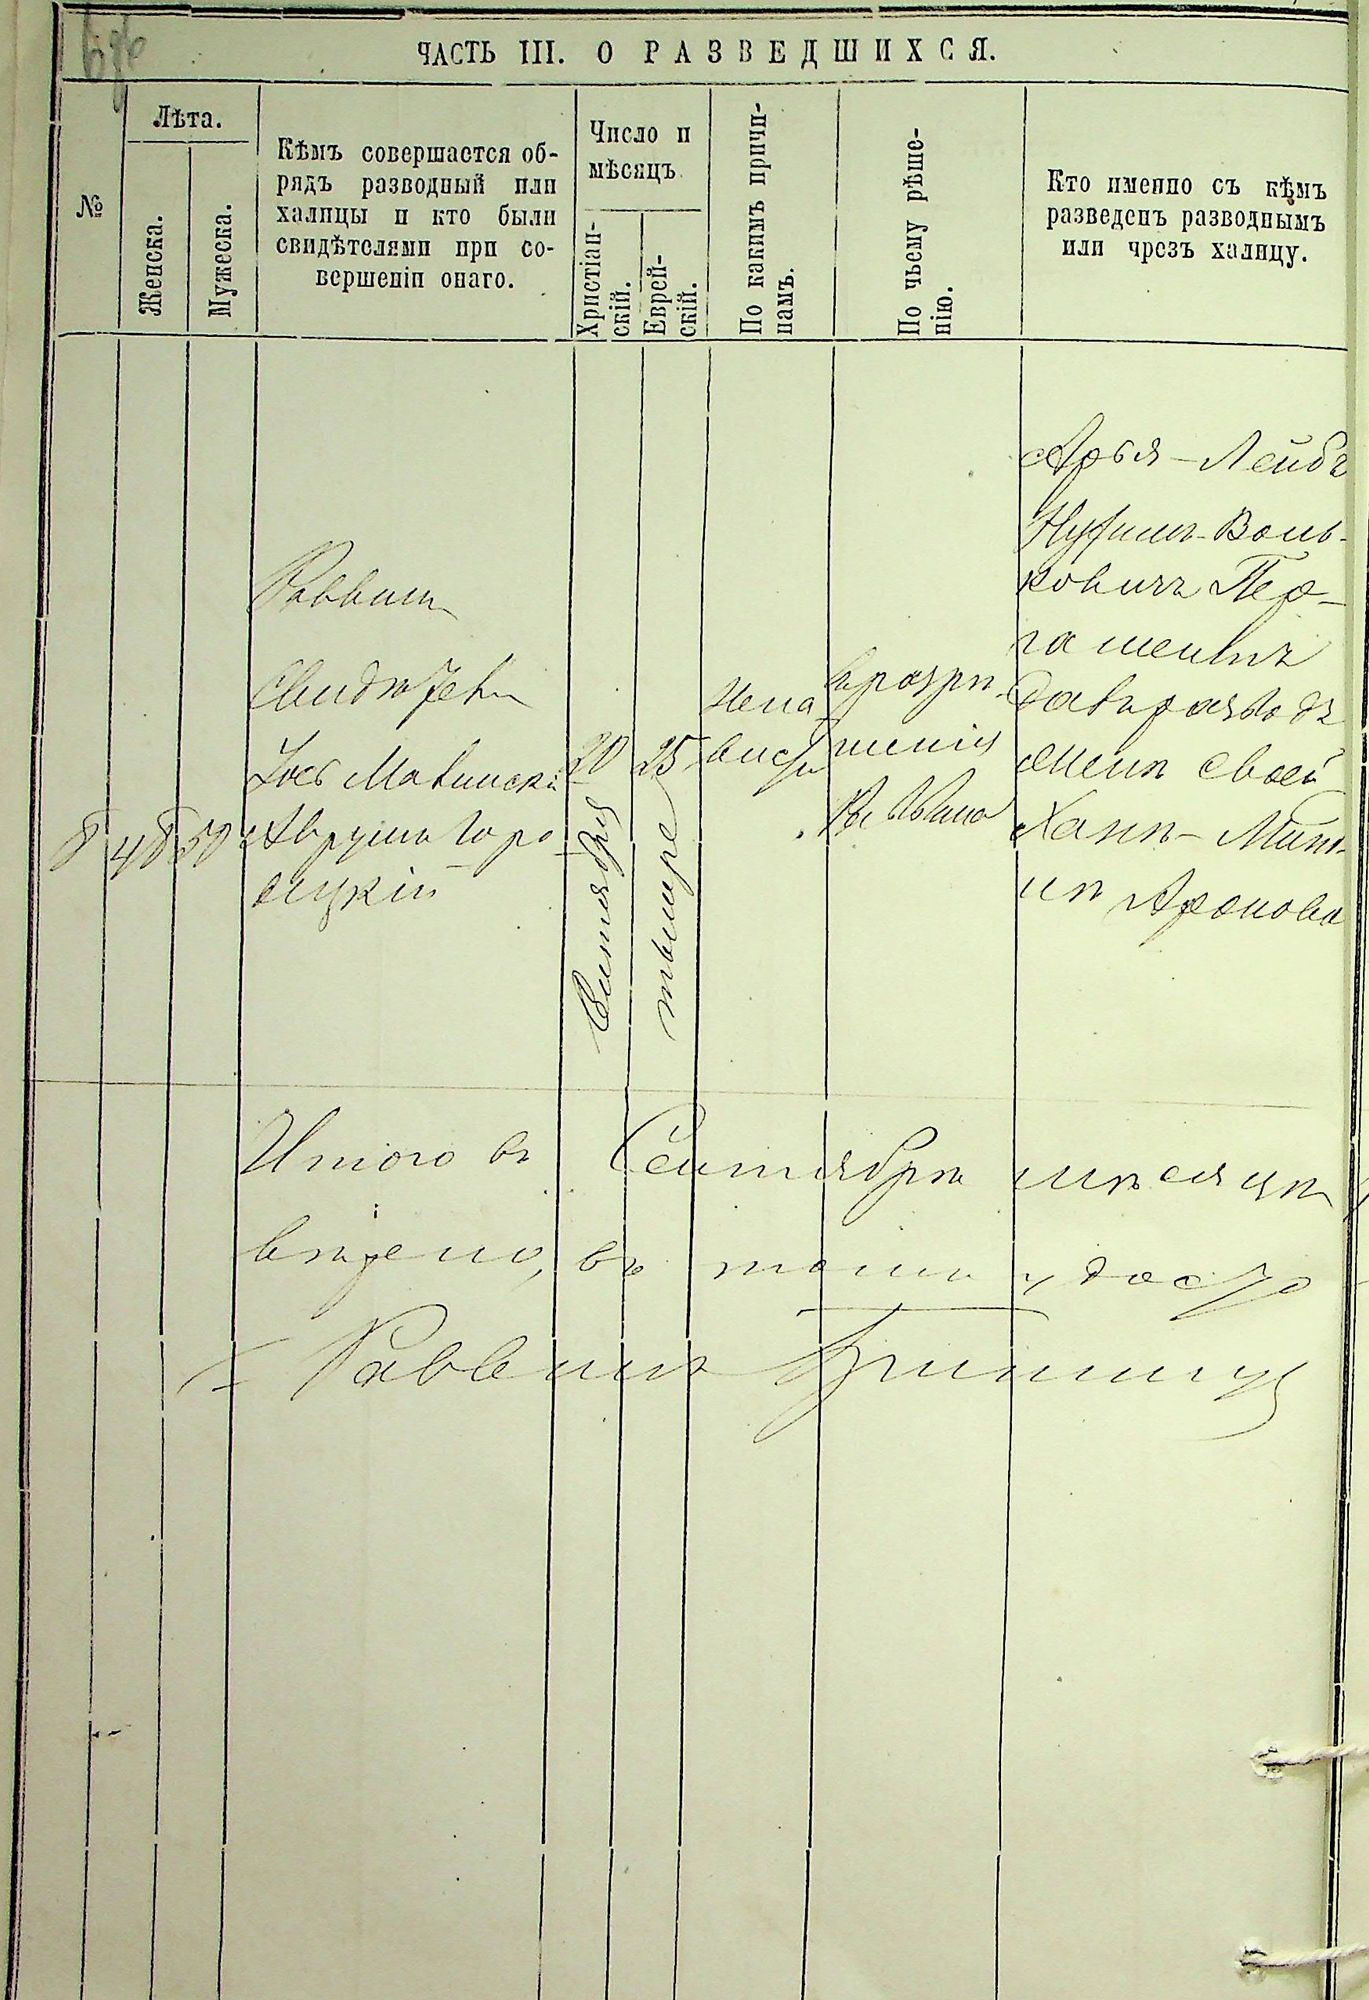 ЧАСТЬ III. О РАЗВЕДШИХСЯ.
№
Лѣта.
Женска.
Мужеска.
Кѣмъ совершается об-
рядъ разводный или
халицы и кто были
свидѣтелями при со-
вершеніи онаго.
Число и
мѣсяцъ.
Христіан-
скій.
Еврей-
скій.
По какимъ причи-
намъ.
По чьему рѣше-
нію.
Кто именно съ кѣмъ
разведенъ разводнымъ
или чрезъ халицу.
8
48
50
Раввинъ
Свидѣтели
Іось
Аврумъ Горо
децкій
20
Сентября
25
тышре
Нена
висти
Раввина
Арья-Лейбъ
Нухимъ-Воль-
ковичъ Пер-
гаментъ
далъ разводъ
женѣ своей
Ханѣ-
Ароновой
Итого въ Сентябрѣ мѣсяцѣ
въ томъ удосто
Раввинъ